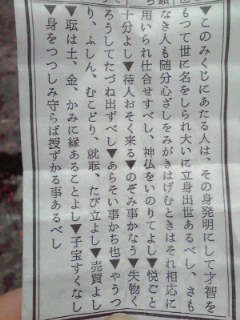 ▼このみくじにあたる人は、その身発明にして才智を
もつて世に名をしられ大いに立身出世あるべし、さも
なき人も随分心ざしをみがきはげむときはそれ相応に
用いられ仕合せすべし、神仏をいのりてよし▼悦ごと
十分よし▼待人おそく来る▼のぞみ事かなう▼失物く
ろうしてたづね出すべし▼あらそい事かち也▼やうつ
り、ふしん、むこどり、就職、たび立よし▼売買よし
▼転は土、金、かみに縁あることよし▼子宝すくなし
▼身をつつしみ守らば授ずかる事あるべし